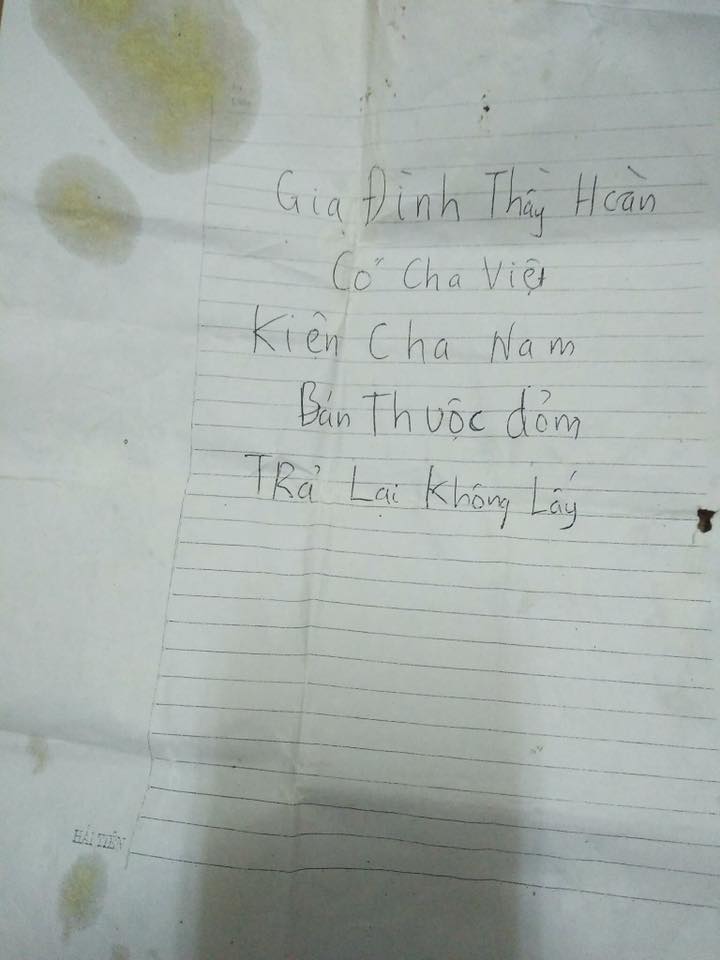 Giạ Đình Thầy Hoàn
Cố Cha Việt
Kiện Cha Nam
Bán Thuộc đỏm
TRả Lại Không Lấy
HẢI TIẾN